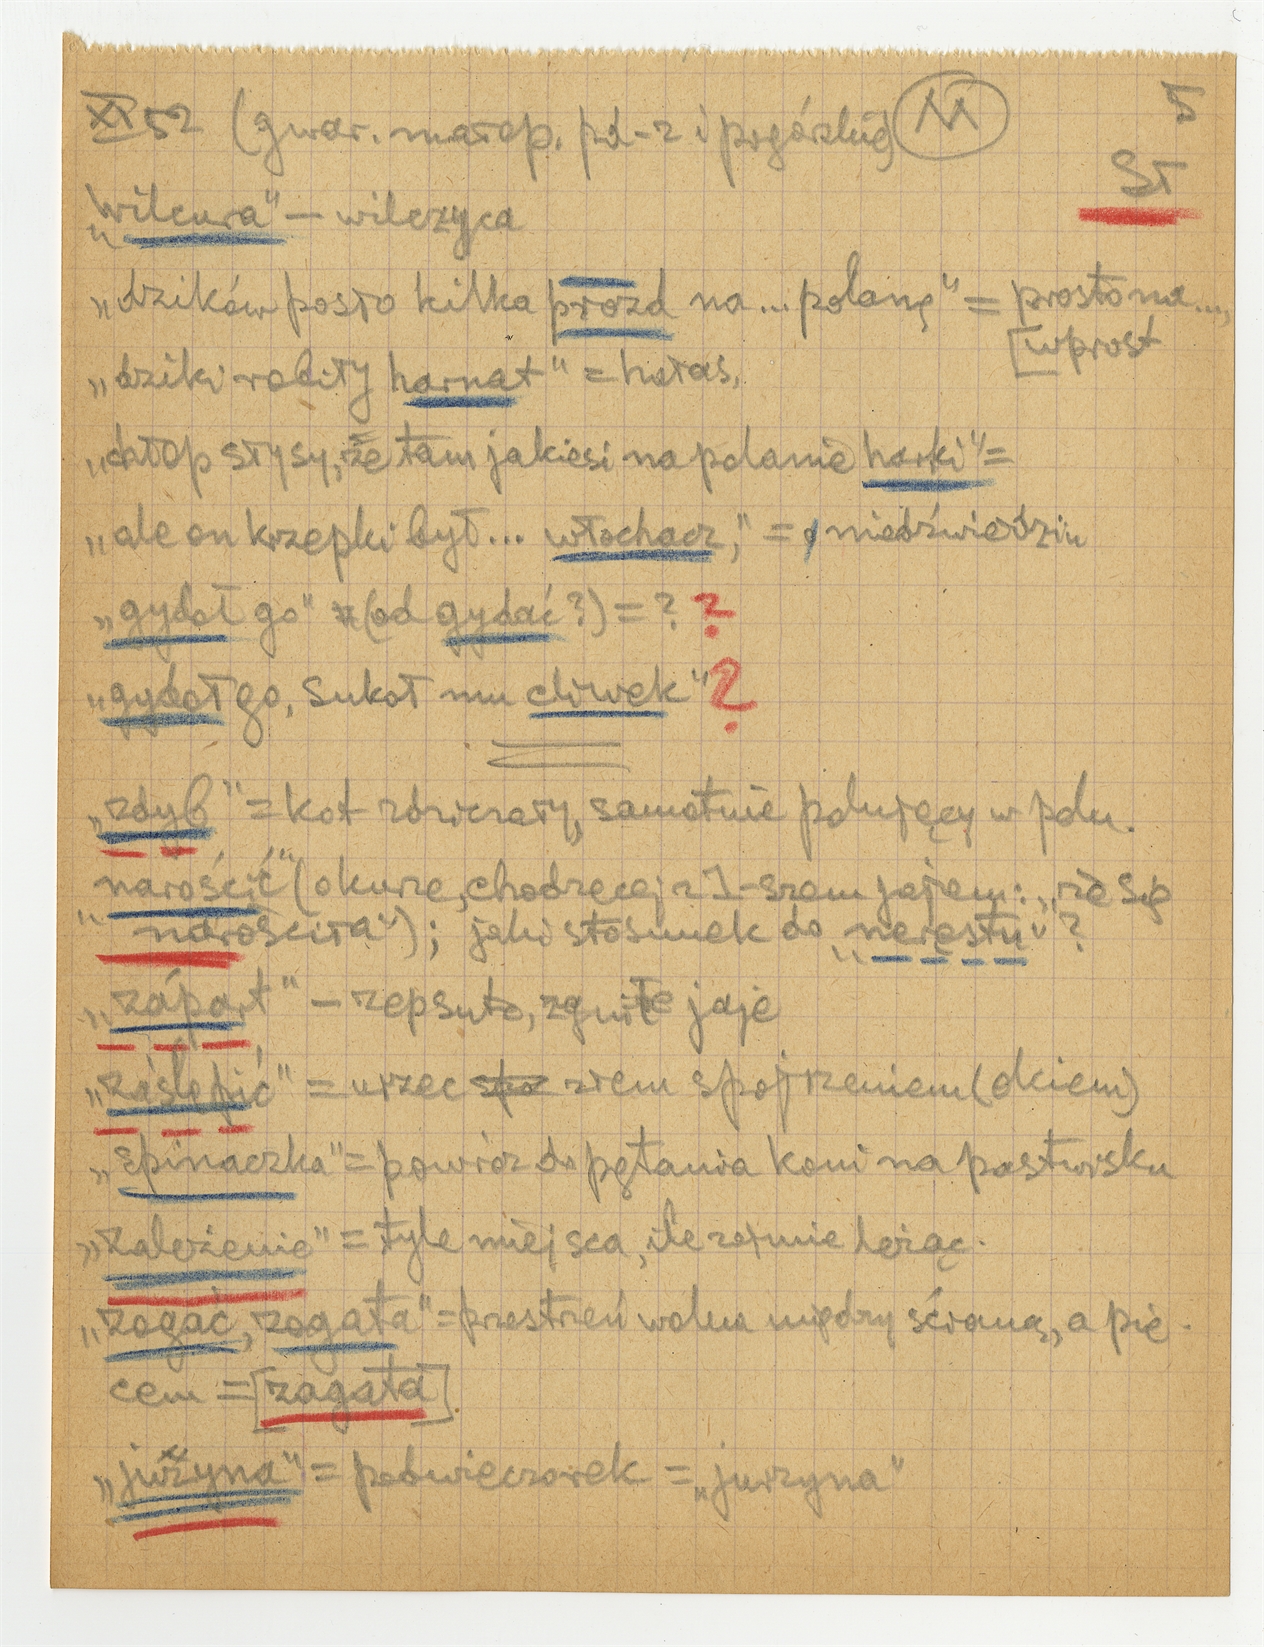 XI 52 (gwar. małop. pd-z i pogórskie) M 5
St
„wilcura" – wilczyca
„dzików posło kilka prozd na... polanę" = prosto na...,
[wprost
„dziki robiły harnat" = hałas,
„chłop słysy, że tam jakiesi na polanie harki" =
„ale on krzepki był... włochacz," = niedźwiedziu
„gydoł go" (od gydać?) = ? ?
„gydoł go, sukoł mu cliwek" ?
„zdyb" = kot zdziczały, samotnie polujący w polu.
„narościć" (o kurze, chodzącej z 1-szem jajem: „że się
narościła"); jaki stosunek do „nerestu" ?
„zápart" – zepsute, zgniłe jaje
„zaślepić" = urzec złem spojrzeniem (okiem)
„spinaczka" = powróz do pętania koni na pastwisku
„zależenie" = tyle miejsca, ile zajmie leżąc.
„zogać, zogata" = przestrzeń wolna między ścianą, a pie-
cem = [zagata].
„jużyna" = podwieczorek = „jurzyna"